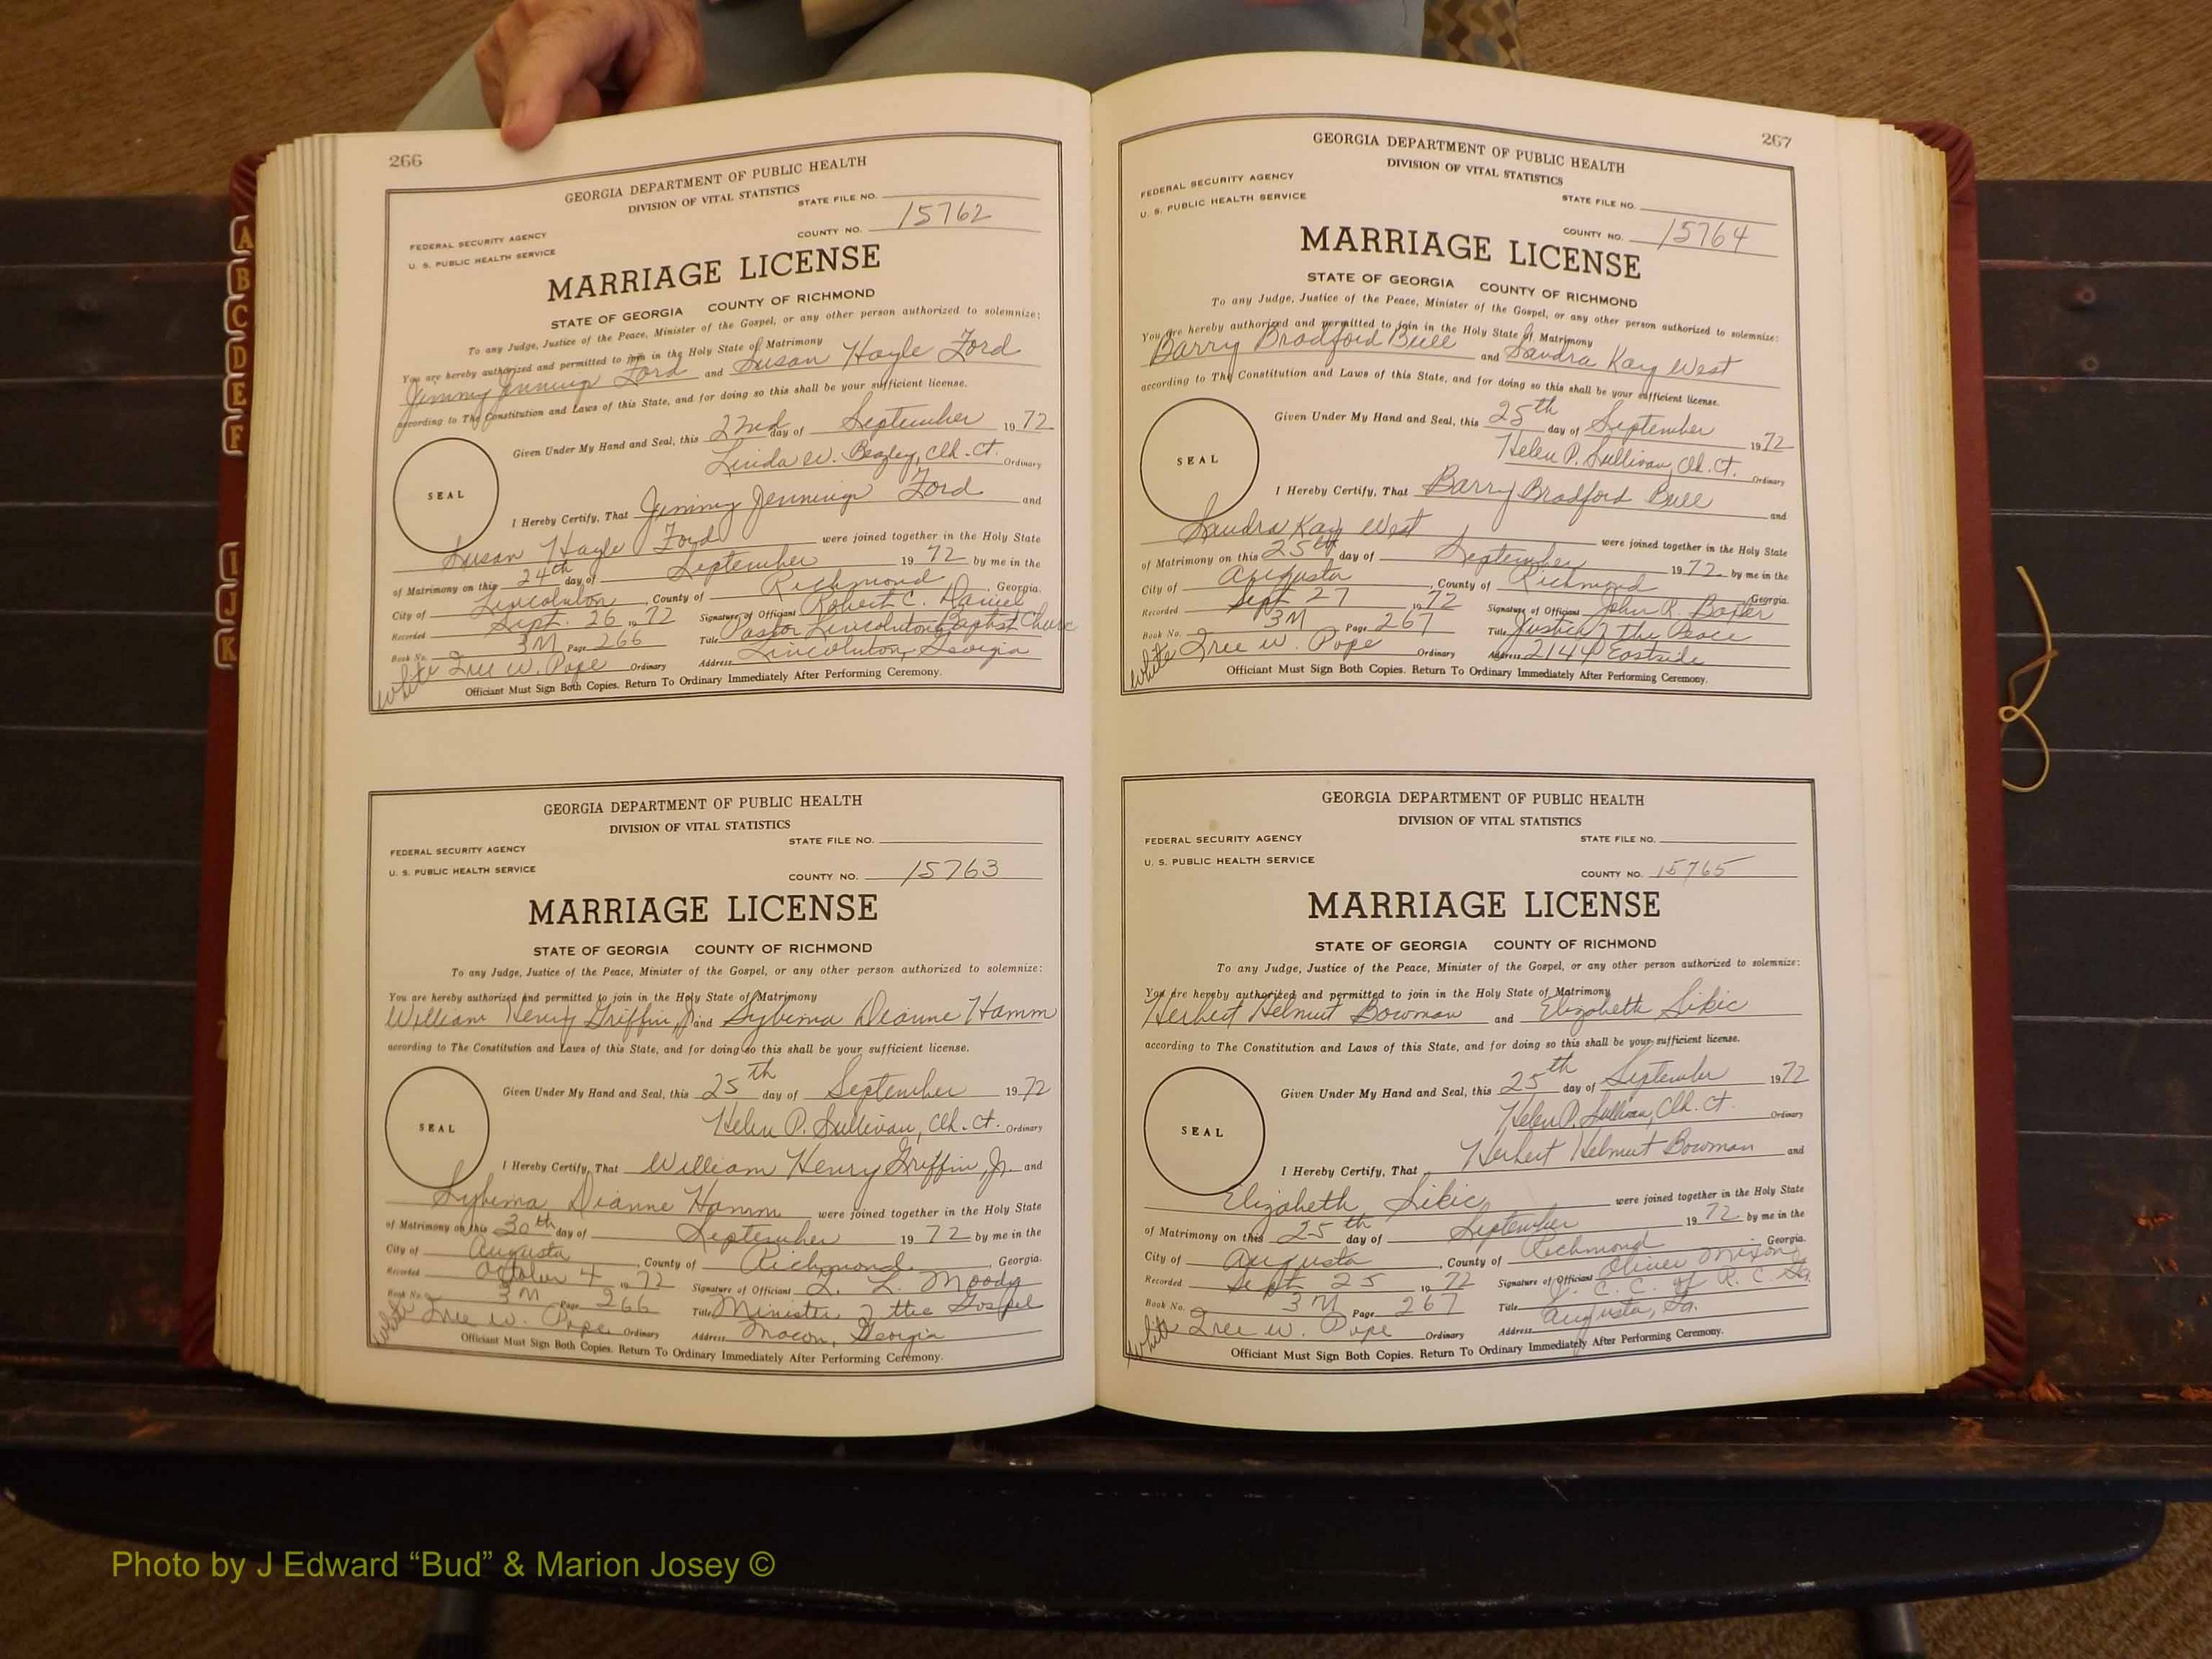 266
GEORGIA DEPARTMENT OF PUBLIC HEALTH
DIVISION OF VITAL STATISTICS
STATE FILE NO.
FEDERAL SECURITY AGENCY
U. S. PUBLIC HEALTH SERVICE
COUNTY NO. 15762
MARRIAGE LICENSE
STATE OF GEORGIA COUNTY OF RICHMOND
To any Judge, Justice of the Peace, Minister of the Gospel, or any other person authorized to solemnize:
You are hereby authorized and permitted to join in the Holy State of Matrimony
Jimmy Jennings Ford and Susan Hayle Ford
according to The Constitution and Laws of this State, and for doing so this shall be your sufficient license.
Given Under My Hand and Seal, this 22nd day of September 1972
Linda W. Beazley, Clk. Ct. Ordinary
SEAL
I Hereby Certify, That Jimmy Jennings Ford and
Susan Hayle Ford were joined together in the Holy State
of Matrimony on this 24th day of September 1972 by me in the
City of Lincolnton, County of Richmond, Georgia.
Recorded Sept. 26 1972 Signature of Officiant Robert C. Daniel
Book No. 3M Page 266 Title Pastor Lincolnton Baptist Churc
white Tree W. Pope Ordinary Address Lincolnton, Georgia
Officiant Must Sign Both Copies. Return To Ordinary Immediately After Performing Ceremony.
GEORGIA DEPARTMENT OF PUBLIC HEALTH
DIVISION OF VITAL STATISTICS
STATE FILE NO.
FEDERAL SECURITY AGENCY
U. S. PUBLIC HEALTH SERVICE
COUNTY NO. 15763
MARRIAGE LICENSE
STATE OF GEORGIA COUNTY OF RICHMOND
To any Judge, Justice of the Peace, Minister of the Gospel, or any other person authorized to solemnize:
You are hereby authorized and permitted to join in the Holy State of Matrimony
William Henry Griffin, Jr. and Sybema Dianne Hamm
according to The Constitution and Laws of this State, and for doing so this shall be your sufficient license.
Given Under My Hand and Seal, this 25th day of September 1972
Helen P. Sullivan, Clk. Ct. Ordinary
SEAL
I Hereby Certify, That William Henry Griffin, Jr. and
Sybema Dianne Hamm were joined together in the Holy State
of Matrimony on this 30th day of September 1972 by me in the
City of Augusta, County of Richmond, Georgia.
Recorded October 4 1972 Signature of Officiant L. L. Moody
Book No. 3M Page 266 Title Minister of the Gospel
white Tree W. Pope Ordinary Address Macon, Georgia
Officiant Must Sign Both Copies. Return To Ordinary Immediately After Performing Ceremony.
267
GEORGIA DEPARTMENT OF PUBLIC HEALTH
DIVISION OF VITAL STATISTICS
FEDERAL SECURITY AGENCY
U. S. PUBLIC HEALTH SERVICE
STATE FILE NO.
COUNTY NO. 15764
MARRIAGE LICENSE
STATE OF GEORGIA COUNTY OF RICHMOND
To any Judge, Justice of the Peace, Minister of the Gospel, or any other person authorized to solemnize:
You are hereby authorized and permitted to join in the Holy State of Matrimony
Barry Bradford Bull and Sandra Kay West
according to The Constitution and Laws of this State, and for doing so this shall be your sufficient license.
Given Under My Hand and Seal, this 25th day of September 1972
Helen P. Sullivan, Clk. Ct. Ordinary
SEAL
I Hereby Certify, That Barry Bradford Bull and
Sandra Kay West were joined together in the Holy State
of Matrimony on this 25th day of September 1972 by me in the
City of Augusta, County of Richmond Georgia.
Recorded Sept. 27 1972 Signature of Officiant John R. Baxter
Book No. 3M Page 267 Title Justice of the Peace
white Tree W. Pope Ordinary Address 2144 Eastside
Officiant Must Sign Both Copies. Return To Ordinary Immediately After Performing Ceremony.
GEORGIA DEPARTMENT OF PUBLIC HEALTH
DIVISION OF VITAL STATISTICS
FEDERAL SECURITY AGENCY
STATE FILE NO.
U. S. PUBLIC HEALTH SERVICE
COUNTY NO. 15765
MARRIAGE LICENSE
STATE OF GEORGIA COUNTY OF RICHMOND
To any Judge, Justice of the Peace, Minister of the Gospel, or any other person authorized to solemnize:
You are hereby authorized and permitted to join in the Holy State of Matrimony
Herbert Helmut Bowman and Elizabeth Sikic
according to The Constitution and Laws of this State, and for doing so this shall be your sufficient license.
Given Under My Hand and Seal, this 25th day of September 1972
Helen P. Sullivan, Clk. Ct. Ordinary
SEAL
I Hereby Certify, That Herbert Helmut Bowman and
Elizabeth Sikic were joined together in the Holy State
of Matrimony on this 25th day of September 1972 by me in the
City of Augusta, County of Richmond Georgia.
Recorded Sept. 25 1972 Signature of Officiant Oliver Mixon
Book No. 3M Page 267 Title J. C. C. of R. C. Ga.
white Tree W. Pope Ordinary Address Augusta, Ga.
Officiant Must Sign Both Copies. Return To Ordinary Immediately After Performing Ceremony.
A
B
C
D
E
F
I
J
K
Photo by J Edward “Bud” & Marion Josey ©